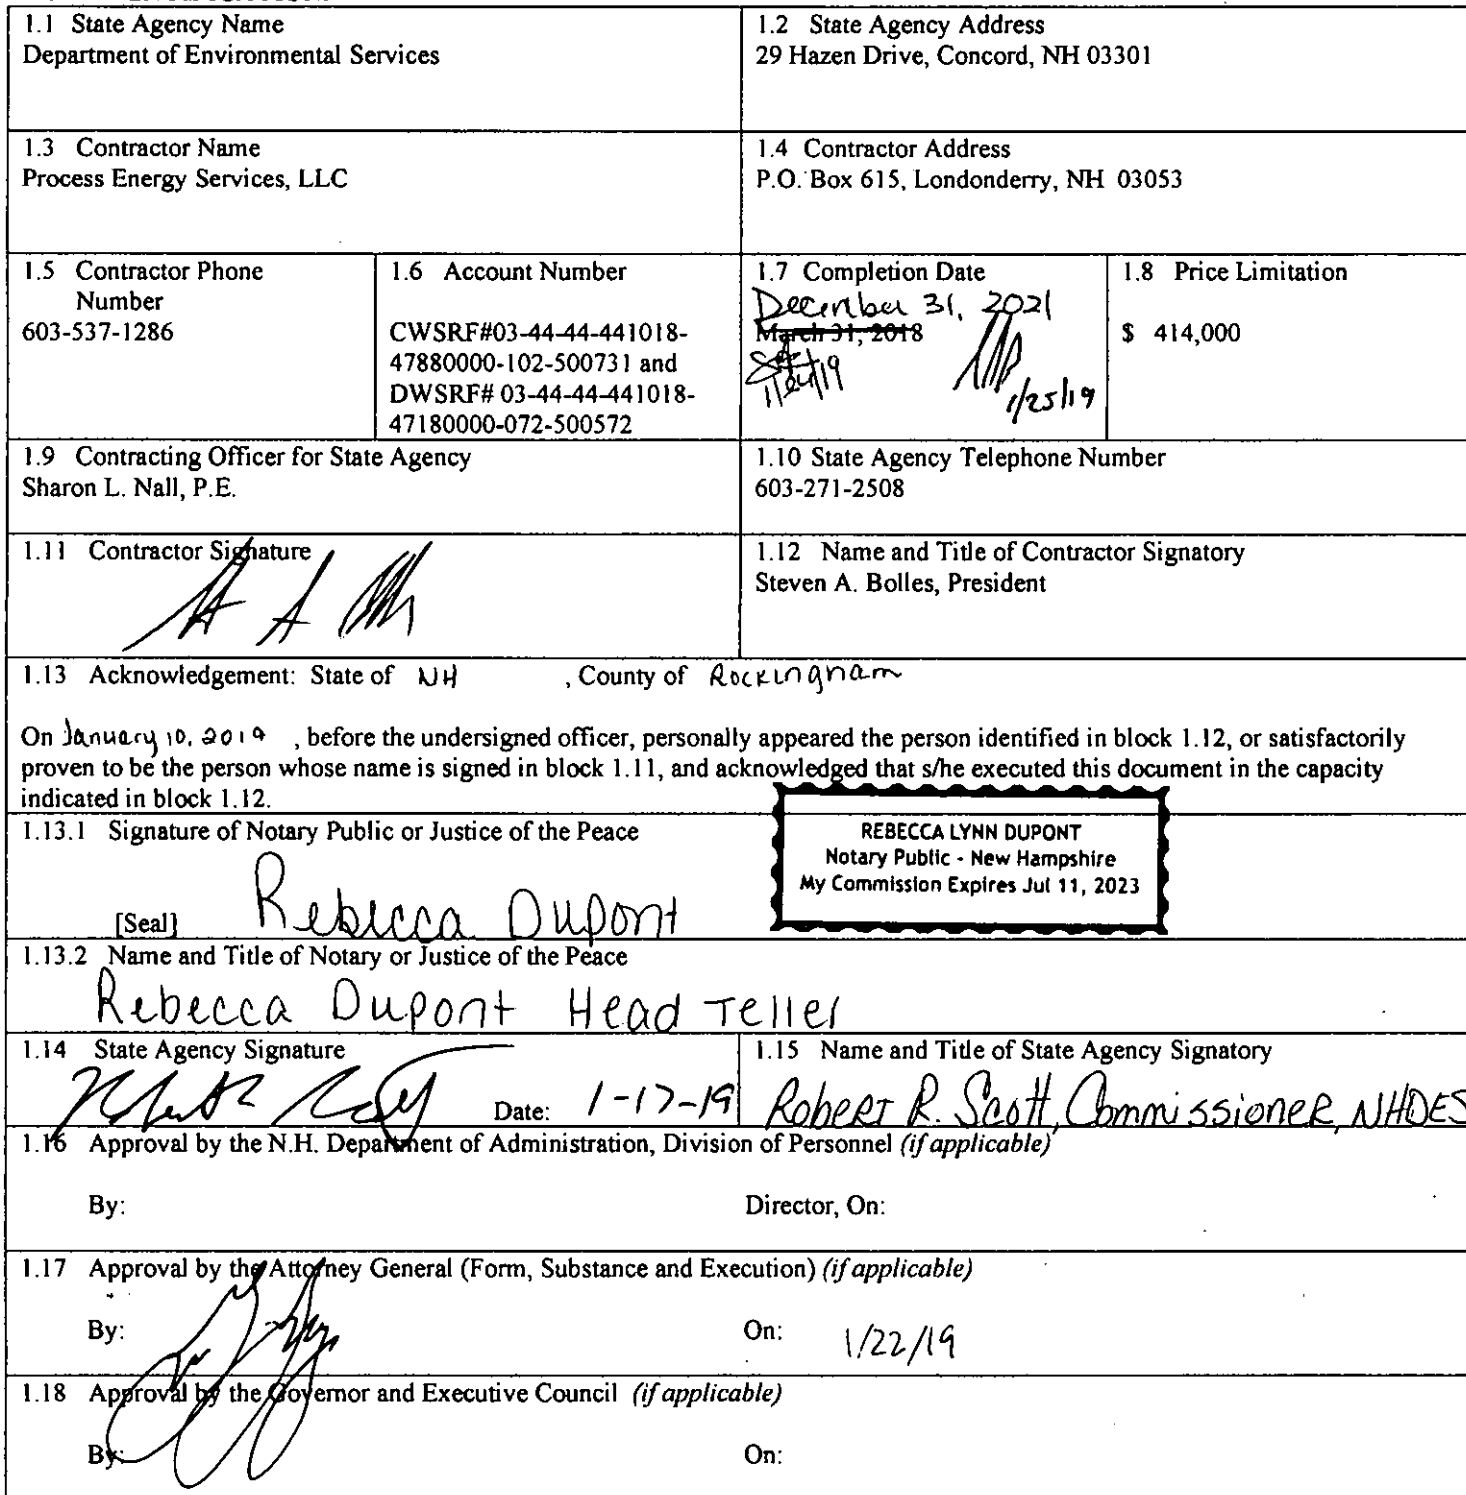 1.1 State Agency Name
Department of Environmental Services
1.2 State Agency Address
29 Hazen Drive, Concord, NH 03301
1.3 Contractor Name
Process Energy Services, LLC
1.4 Contractor Address
P.O. Box 615, Londonderry, NH 03053
1.5 Contractor Phone
Number
603-537-1286
1.6 Account Number
CWSRF#03-44-44-441018-
47880000-102-500731 and
DWSRF# 03-44-44-441018-
47180000-072-500572
1.7 Completion Date
December 31, 2021
March 31, 2018
1/24/19
1/25/19
1.8 Price Limitation
$ 414,000
1.9 Contracting Officer for State Agency
Sharon L. Nall, P.E.
1.10 State Agency Telephone Number
603-271-2508
1.11 Contractor Signature
1.12 Name and Title of Contractor Signatory
Steven A. Bolles, President
1.13 Acknowledgement: State of NH , County of Rockingham
On January 10, 2019 , before the undersigned officer, personally appeared the person identified in block 1.12, or satisfactorily
proven to be the person whose name is signed in block 1.11, and acknowledged that s/he executed this document in the capacity
indicated in block 1.12.
1.13.1 Signature of Notary Public or Justice of the Peace
[Seal] Rebecca Dupont
REBECCA LYNN DUPONT
Notary Public - New Hampshire
My Commission Expires Jul 11, 2023
1.13.2 Name and Title of Notary or Justice of the Peace
Rebecca Dupont Head Teller
1.14 State Agency Signature
Date: 1-17-19
1.15 Name and Title of State Agency Signatory
Robert R. Scott, Commissioner, NHDES
1.16 Approval by the N.H. Department of Administration, Division of Personnel (if applicable)
By: Director, On:
1.17 Approval by the Attorney General (Form, Substance and Execution) (if applicable)
By: On: 1/22/19
1.18 Approval by the Governor and Executive Council (if applicable)
By: On: